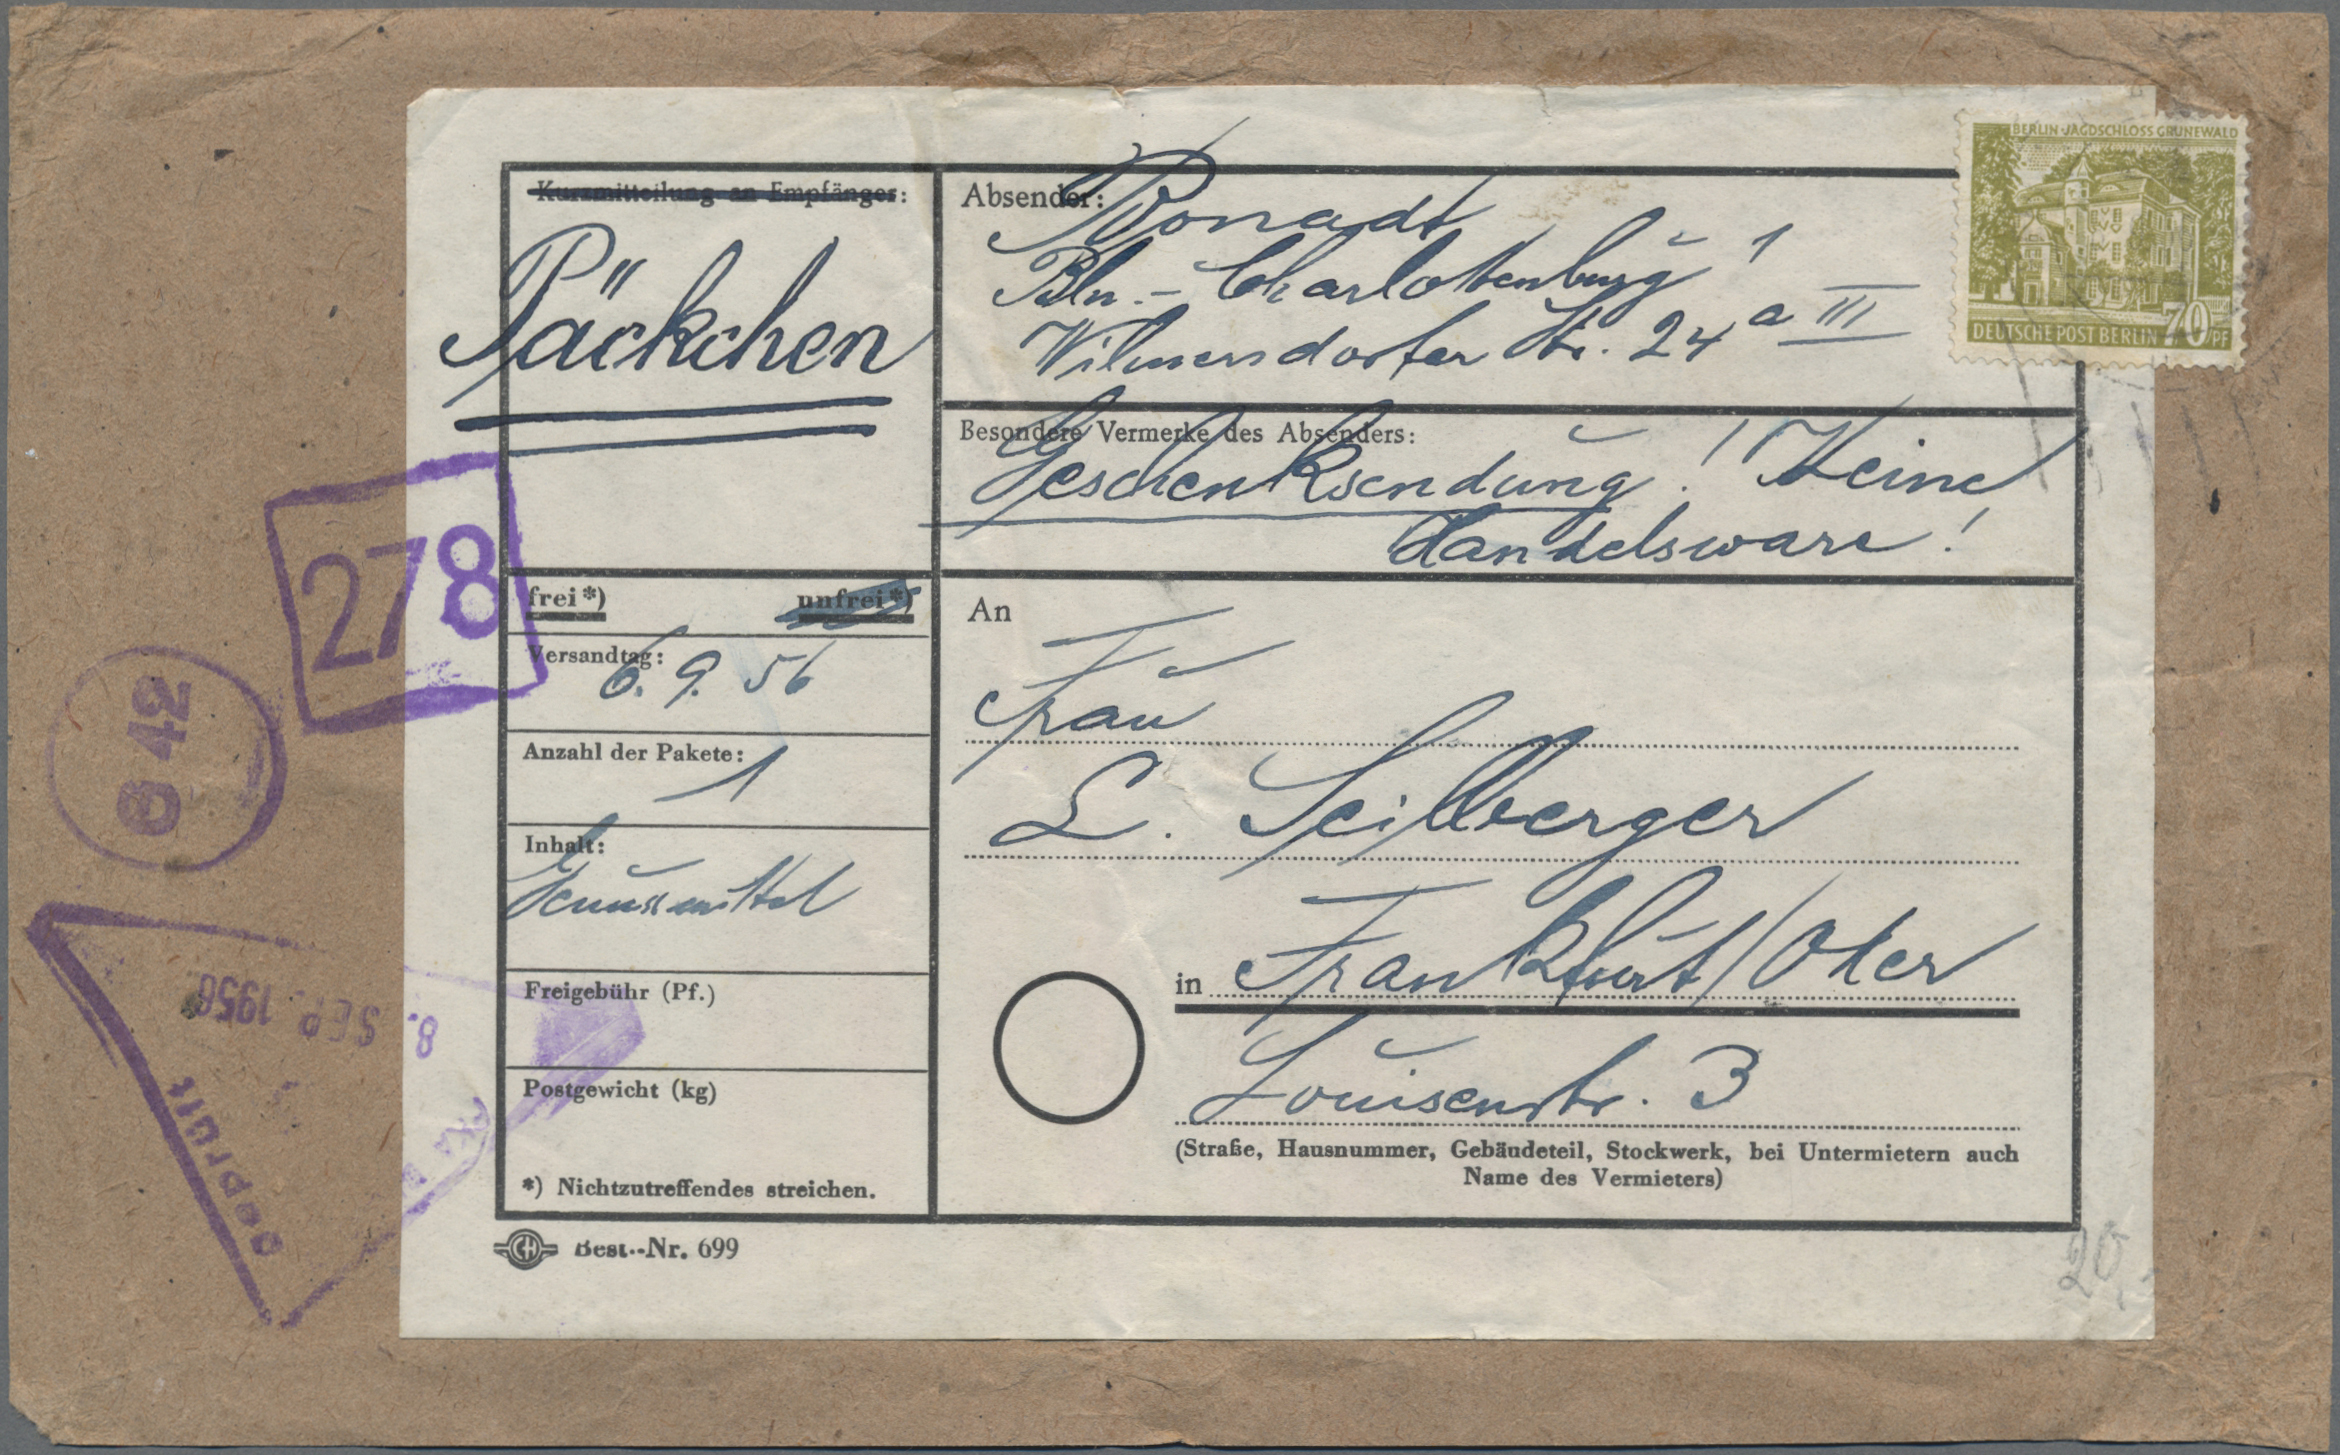 Kurzmitteilung an Empfänger:
Päckchen
Absender:
Bln.-Charlottenburg 1
Wilmersdorfer Str. 24 a III
BERLIN-JAGDSCHLOSS GRUNEWALD
DEUTSCHE POST BERLIN 70 PF
Besondere Vermerke des Absenders:
Geschenksendung! Keine
Handelsware!
278
frei*) unfrei*)
Versandtag:
6. 9. 56
Anzahl der Pakete:
1
Inhalt:
Genussmittel
Freigebühr (Pf.)
Postgewicht (kg)
*) Nichtzutreffendes streichen.
CH Best.-Nr. 699
An
Frau
L. Seilberger
in Frankfurt/Oder
Louisenstr. 3
(Straße, Hausnummer, Gebäudeteil, Stockwerk, bei Untermietern auch
Name des Vermieters)
42
8. SEP. 1956
Geprüft
20,-